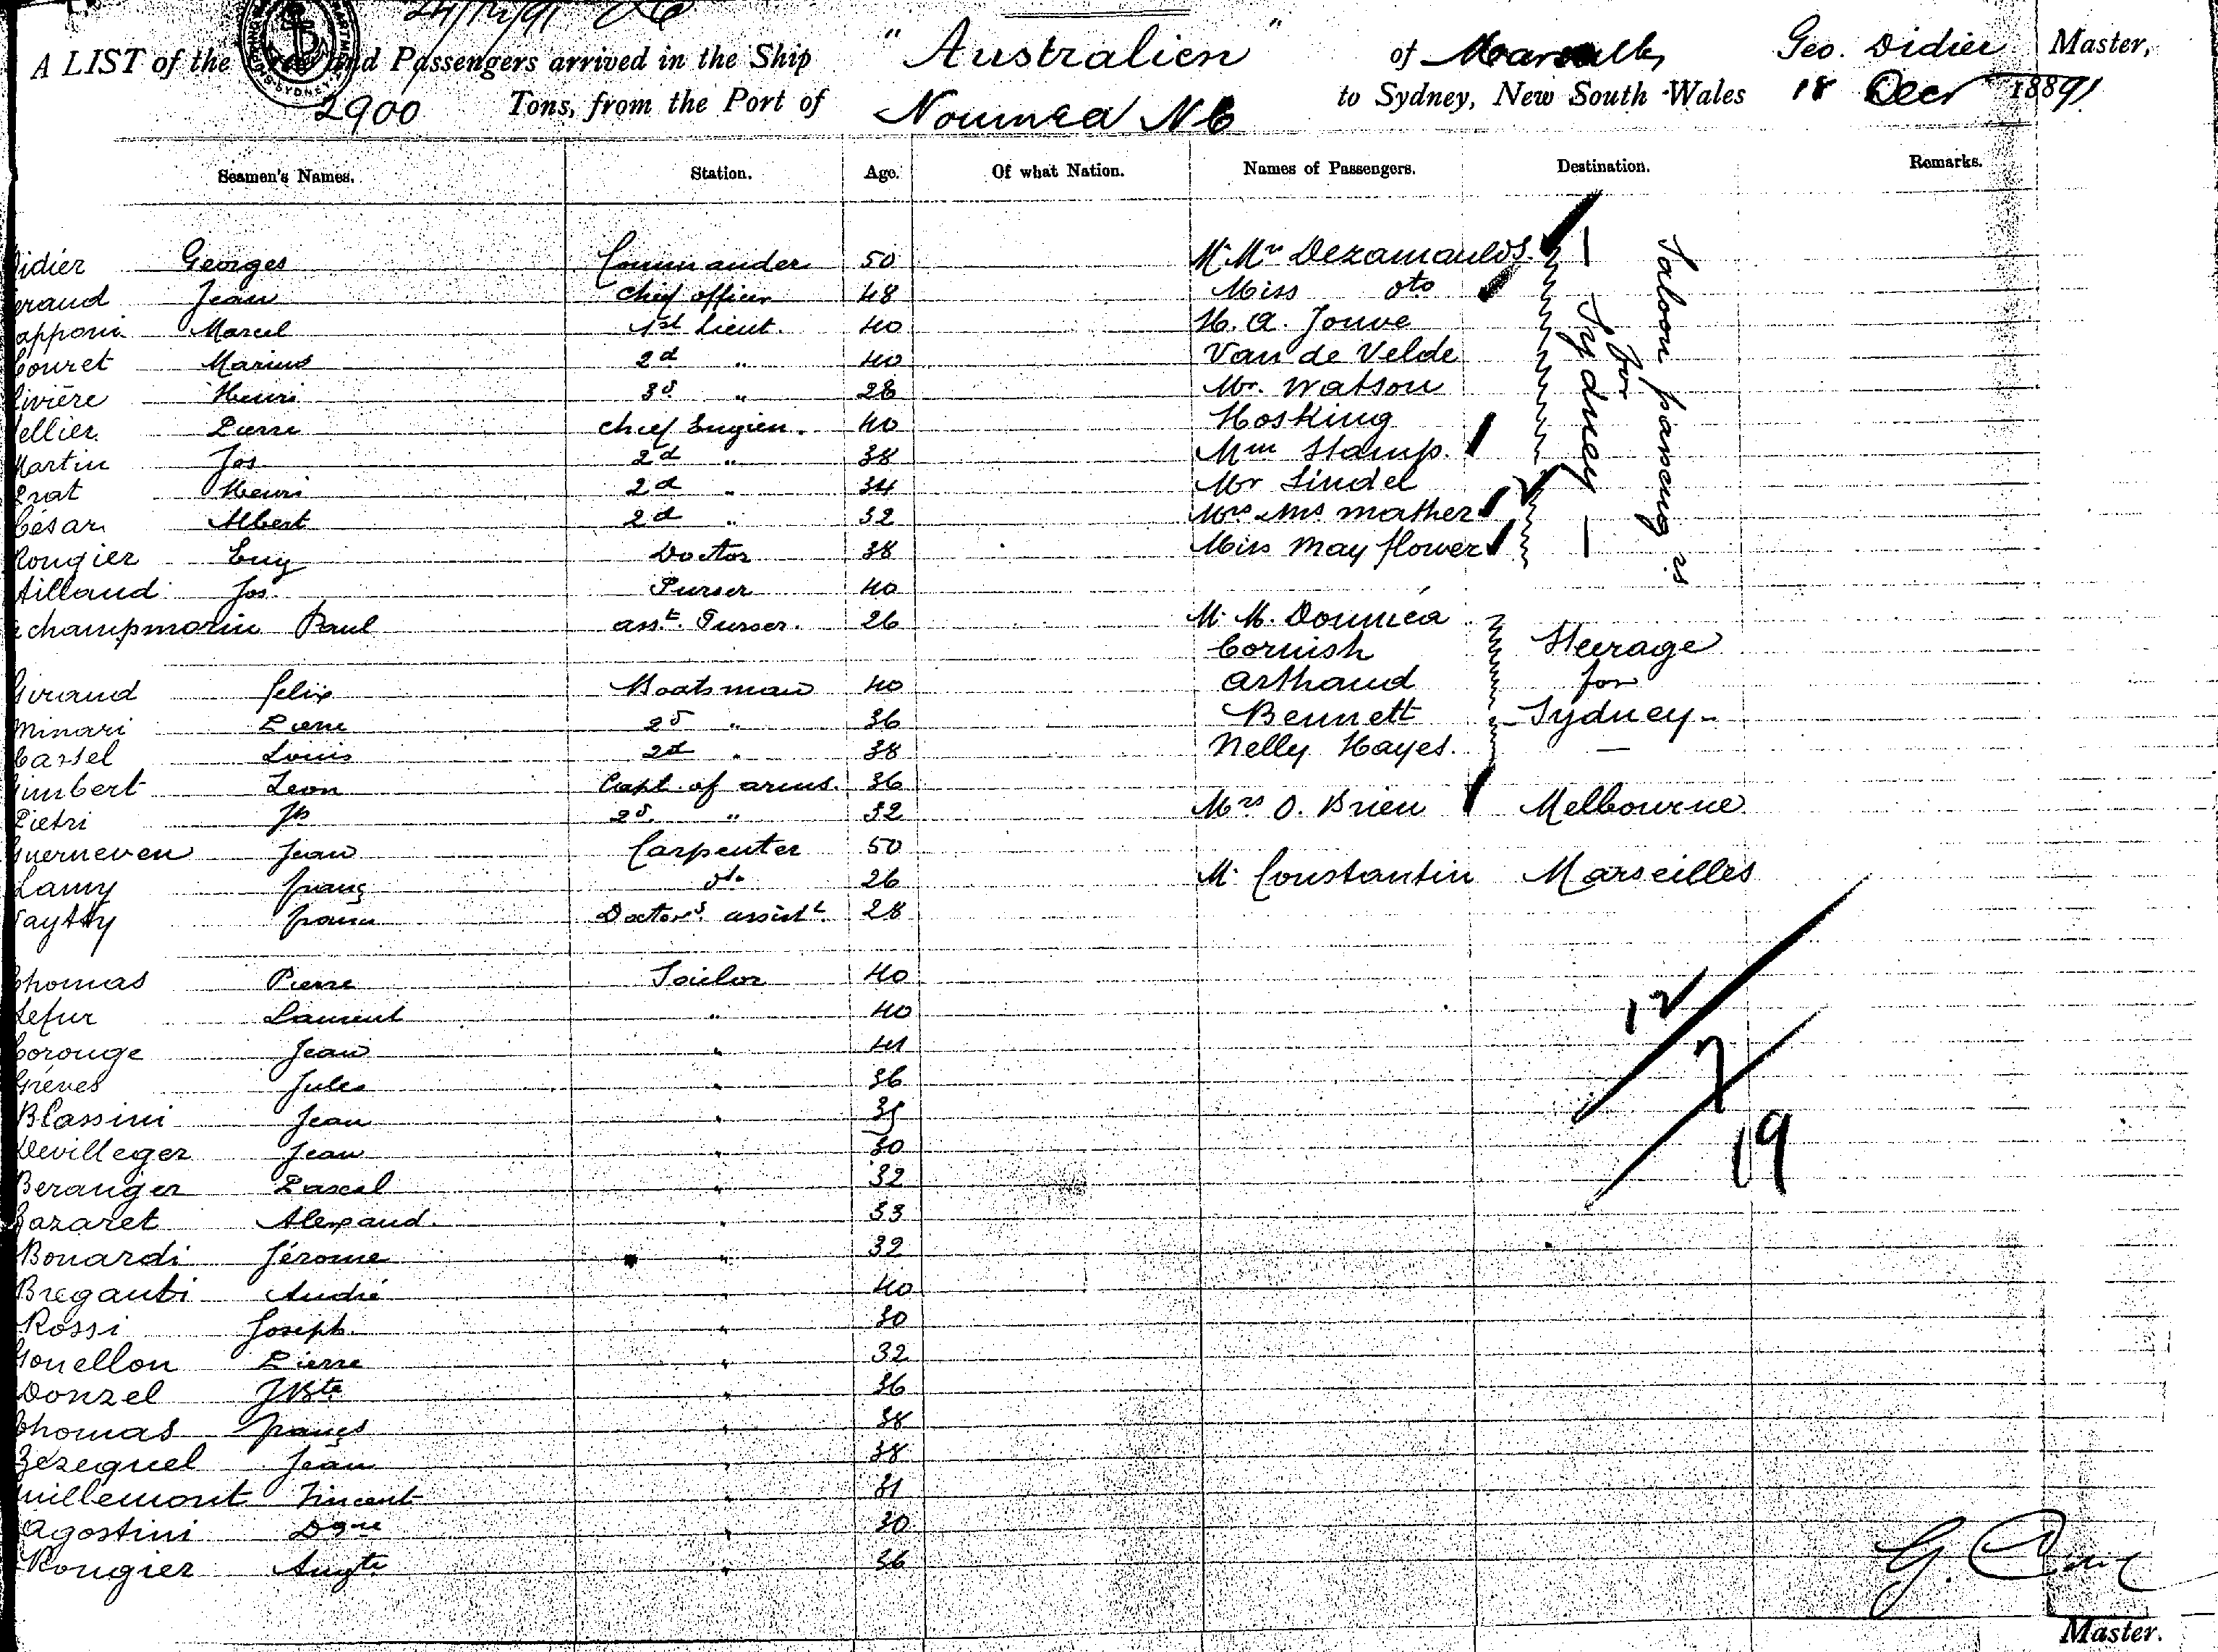 24/12/91
A LIST of the Crew and Passengers arrived in the Ship "Australien" of Marseilles Geo. Didier Master,
2900 Tons, from the Port of Noumea N C to Sydney, New South Wales 18 Decr 1891
Seamen's Names. Station. Age. Of what Nation. Names of Passengers. Destination. Remarks.
idier Georges Commander 50 M. Mrs Dezamaulds.
eraud Jean Chief officer 48 Miss dto
apponi Marcel 1st Lieut. 40 H. A. Jouve
Couret Marius 2d " 40 Van de Velde
ivière Henri 3d " 28 Mr. Watson
ellier Pierre chief Engien. 40 Hosking
Martin Jos 2d " 38 Mm Stamp.
Prat Henri 2d " 34 Mr Lindel
César Albert 2d " 32 Mrs Mather
Rougier Eug Doctor 38 Miss May flower
Saloon passengers
for
— Sydney —
Aillaud Jos Purser 40
champmorin Paul asst. Purser. 26 M. M. Doumea
Cornish Steerage
Giraud felix Boatsman 40 Arthaud for
minari Pierre 2d " 36 Bennett Sydney
Cassel Louis 2d " 38 Nelly Hayes. —
imbert Leon Capt. of arms. 36
Pietri Jh 2d " 32 Mrs O. Brien Melbourne
uerneven Jean Carpenter 50
Lamy franç dto 26 M. Constantin Marseilles
aytty franc Doctors assistt. 28
Thomas Pierre Sailor 40
Lefur Laurent " 40
Corouge Jean " 41
Grèves Jules " 36
Blassini Jean " 35
Devilleger Jean " 30
Beranger Pascal " 32
azaret Alexand. " 33
Bonardi Jérome " 32
Breganti André " 40
Rossi Joseph " 30
Gouellon Pierre " 32
Donzel JBte " 36
Thomas françs " 38
Bézequel Jean " 38
uillemont Vincent " 31
Agostini Dque " 30
Rougier Augte " 36
12
7
19
G.
Master.